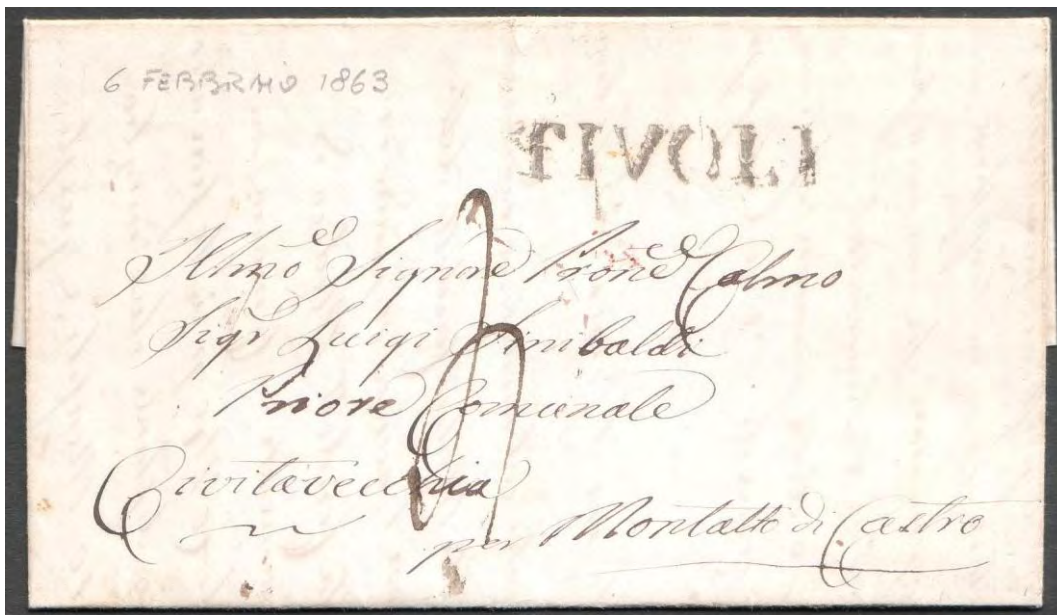 6 FEBBRAIO 1863
TIVOLI
Illmo Signore Prone Colmo
Sigr Luigi Sinibaldi
Priore Comunale
Civitavecchia
per Montalto di Castro